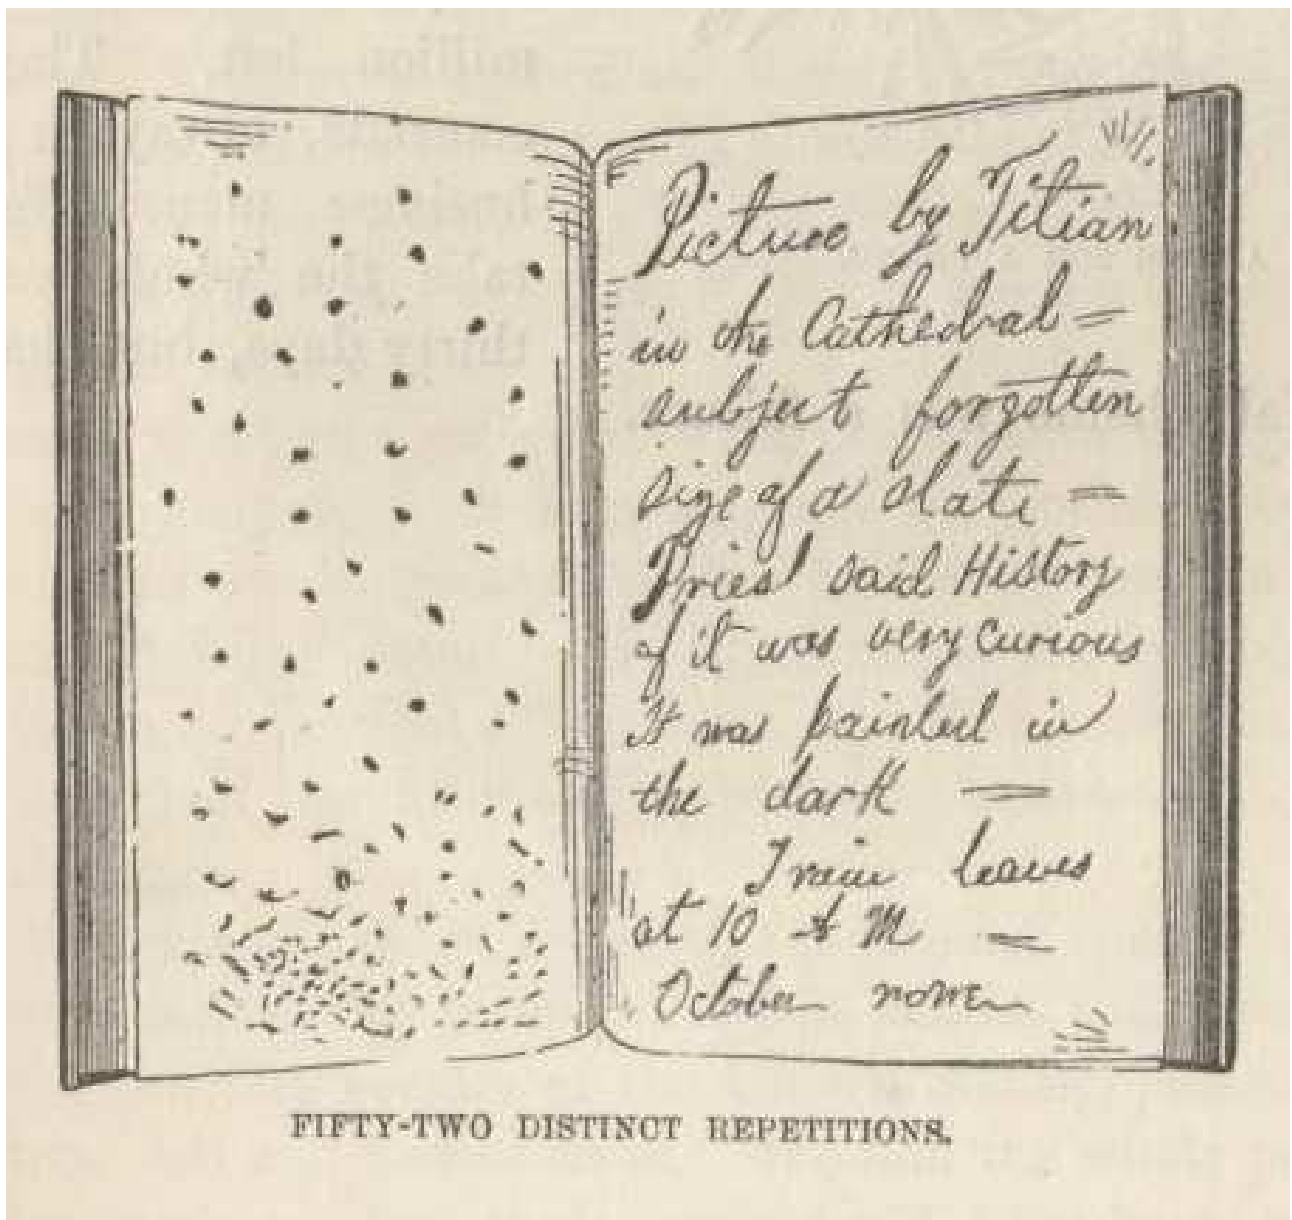 Picture by Titian
in the Cathedral =
subject forgotten
size of a slate =
Priest said History
of it was very curious
It was painted in
the dark =
Train leaves
at 10 A M =
October
FIFTY-TWO DISTINCT REPETITIONS.